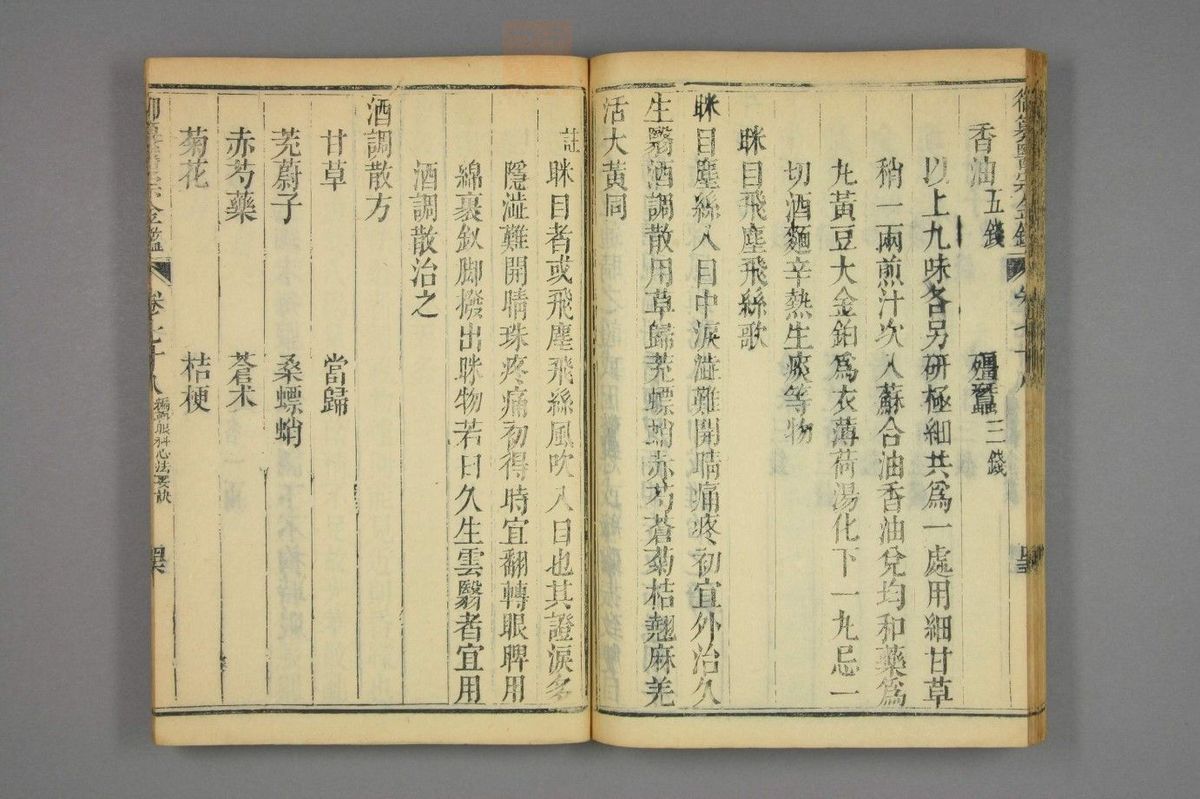 香油五錢 殭蠶三錢
以上九味各另研極細共為一處用細甘草
稍一兩煎汁次入蘇合油香油兌均和藥為
丸黃豆大金鉑為衣薄荷湯化下一丸忌一
切酒麵辛熱生痰等物
眯目飛塵飛絲歌
眯目塵絲入目中淚澁難開睛痛疼初宜外治久
生翳酒調散用草歸茺螵蛸赤芍蒼菊桔翹麻羌
活大黃同
註眯目者或飛塵飛絲風吹入目也其證淚多
隱澁難開睛珠疼痛初得時宜翻轉眼睥用
綿裹釵脚撥出眯物若日久生雲翳者宜用
酒調散治之
酒調散方
甘草 當歸
茺蔚子 桑螵蛸
赤芍藥 蒼朮
菊花 桔梗
卷七十八 編新眼科心法要訣